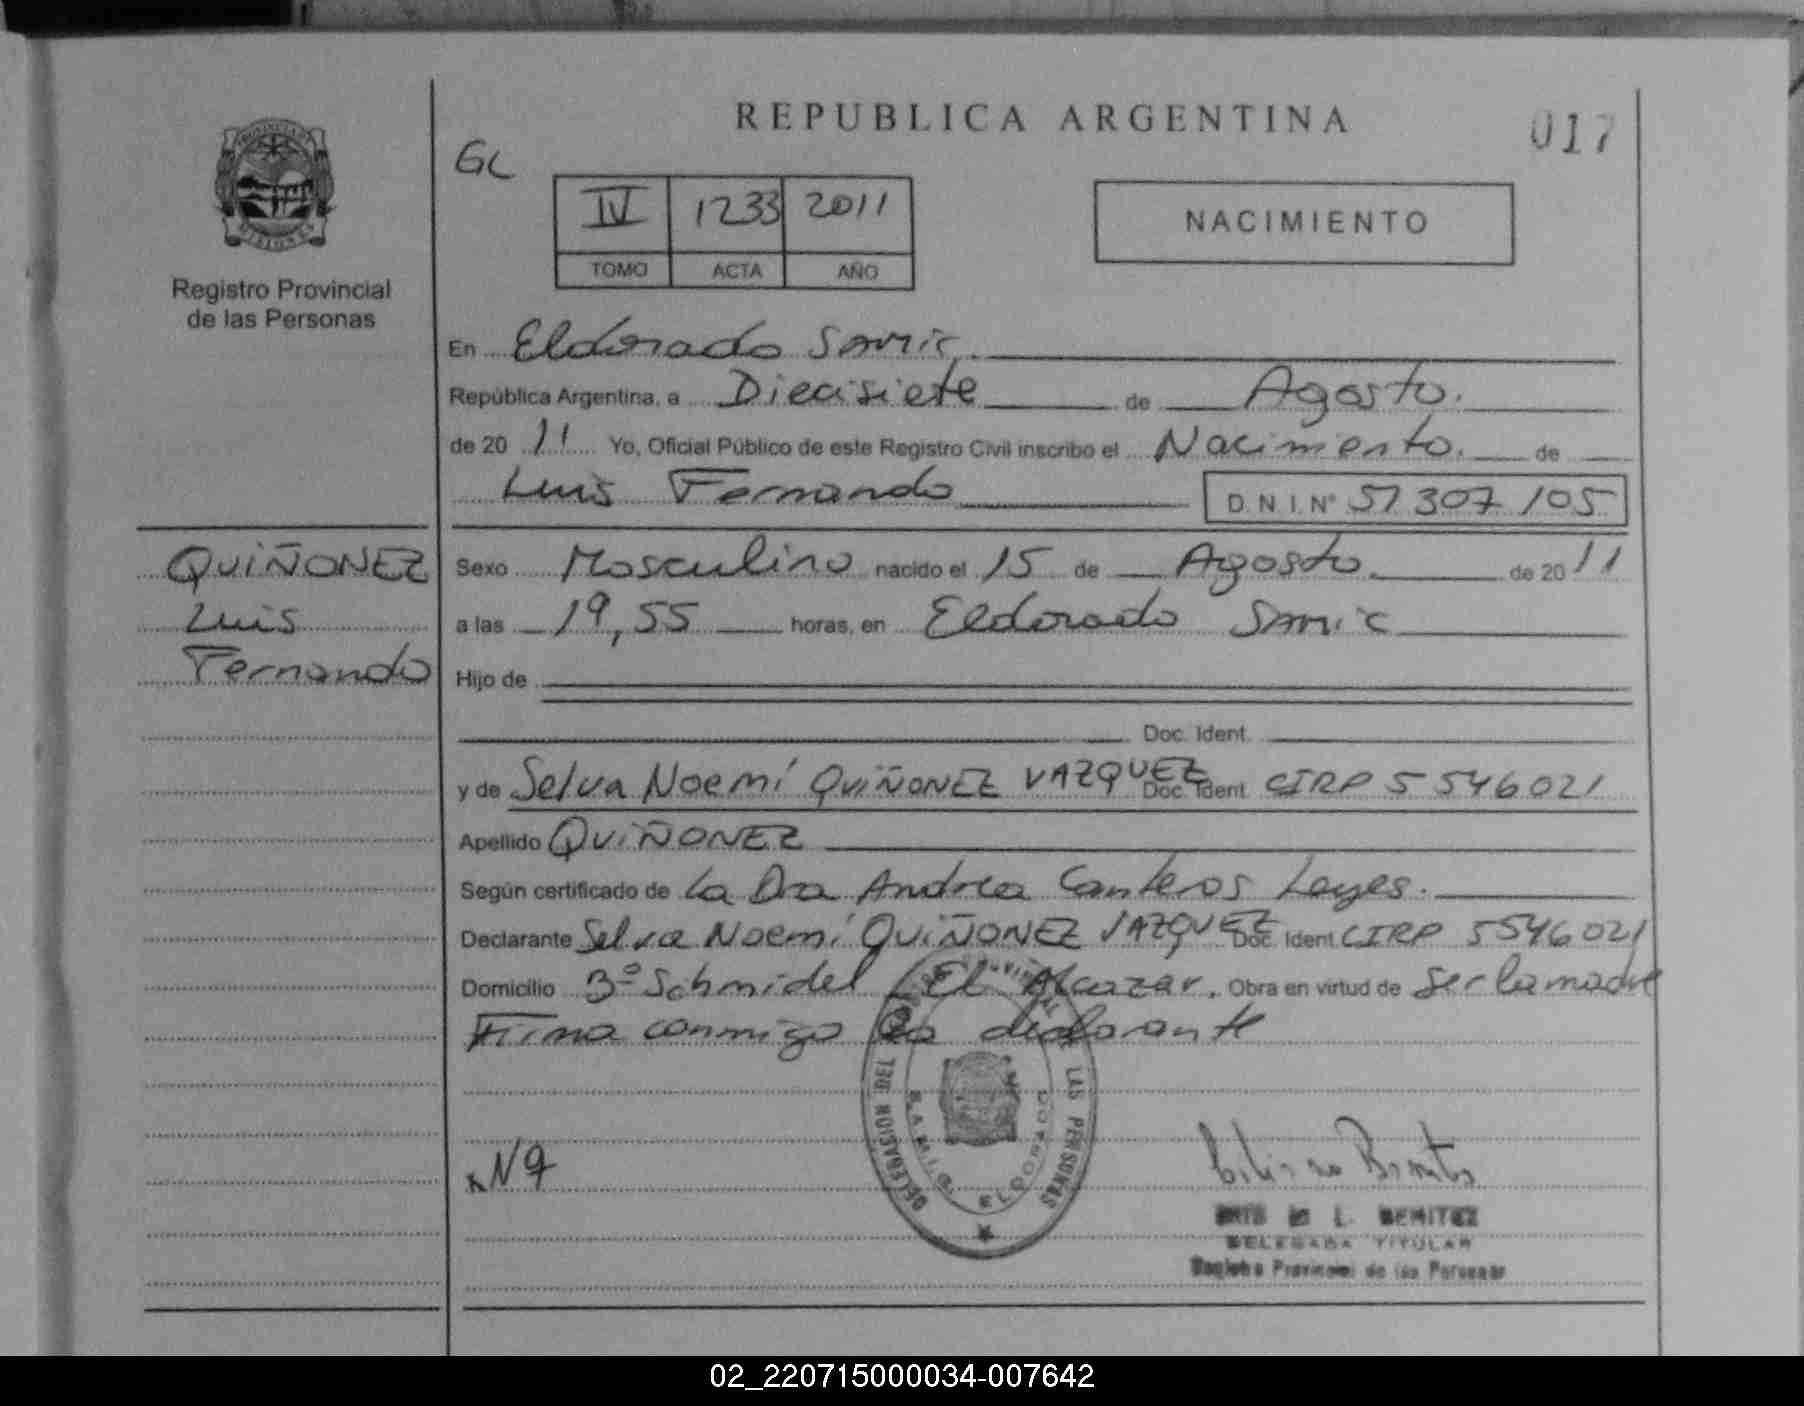 REPUBLICA ARGENTINA
017
GL
IV 1233 2011
TOMO ACTA AÑO
NACIMIENTO
PROVINCIA DE MISIONES
Registro Provincial
de las Personas
En Eldorado Samic.
República Argentina, a Diecisiete de Agosto.
de 20 11 Yo, Oficial Público de este Registro Civil inscribo el Nacimiento. de
Luis Fernando D.N.I.Nº 51 307 105
QUIÑONEZ
Luis
Fernando
Sexo Masculino nacido el 15 de Agosto de 20 11
a las 19,55 horas, en Eldorado Samic
Hijo de
Doc. Ident.
y de Selva Noemí QUIÑONEZ VAZQUEZ Doc. Ident. CIRP 5 546021
Apellido QUIÑONEZ
Según certificado de La Dra Andrea Canteros Leyes.
Declarante Selva Noemí QUIÑONEZ VAZQUEZ Doc. Ident. CIRP 5546021
Domicilio Bº Schmidel El Alcazar. Obra en virtud de ser la madre
Firma conmigo la declarante
DELEGACION DEL REGISTRO PROVINCIAL DE LAS PERSONAS
SAMIC ELDORADO
L. BENITEZ
DELEGADA TITULAR
Registro Provincial de las Personas
02_220715000034-007642